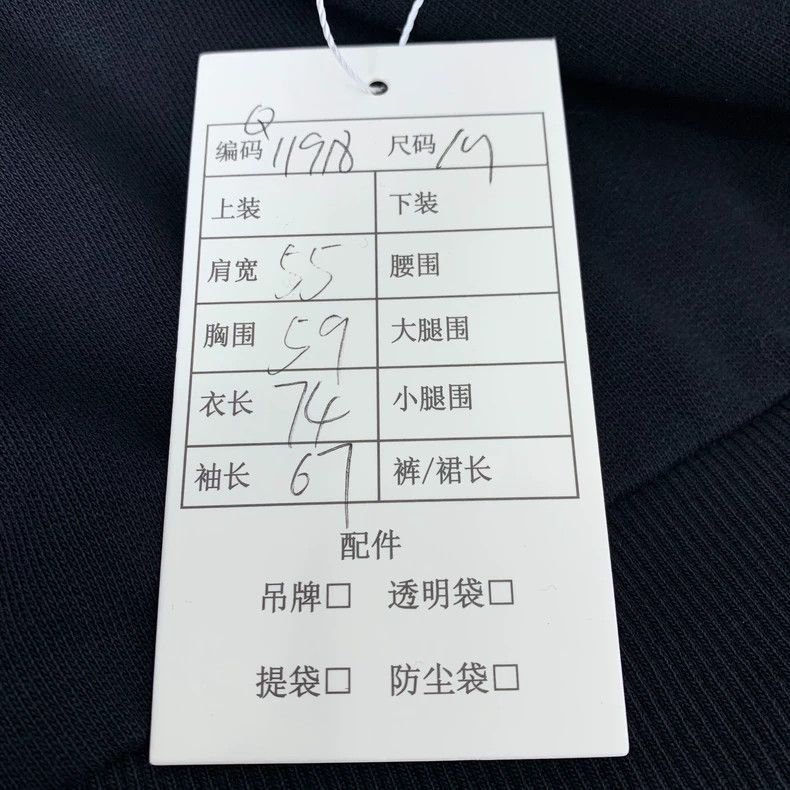 编码 Q11918 尺码 M
上装 下装
肩宽 55 腰围
胸围 59 大腿围
衣长 74 小腿围
袖长 67 裤/裙长
配件
吊牌□ 透明袋□
提袋□ 防尘袋□